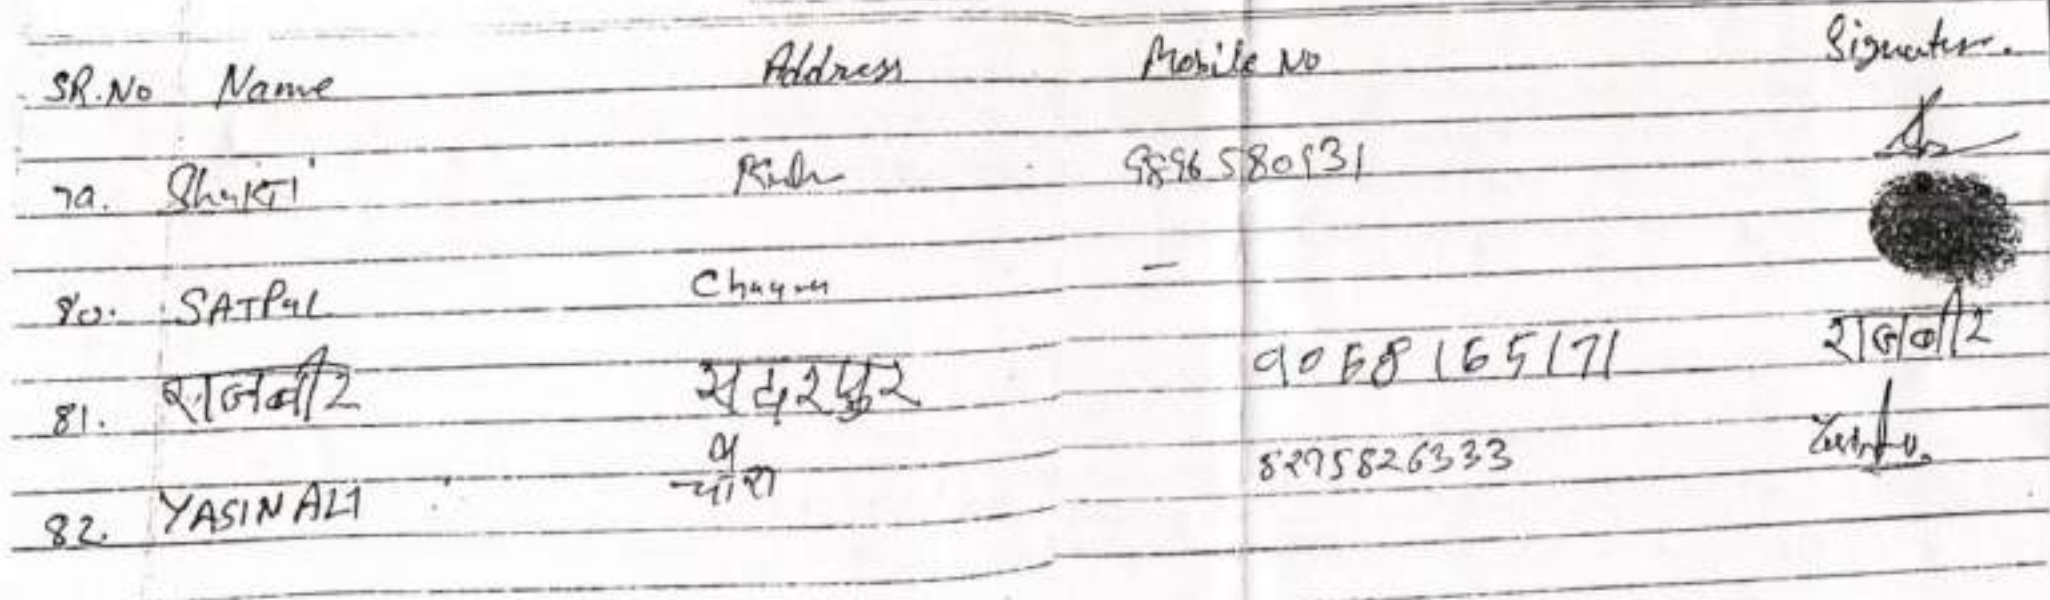 SR.No Name Address Mobile No Signature.
79. Shakti 9896580931
80. SATPAL -
81. राजबीर सदरपुर 9068165171 राजबीर
82. YASIN ALI 8275826333